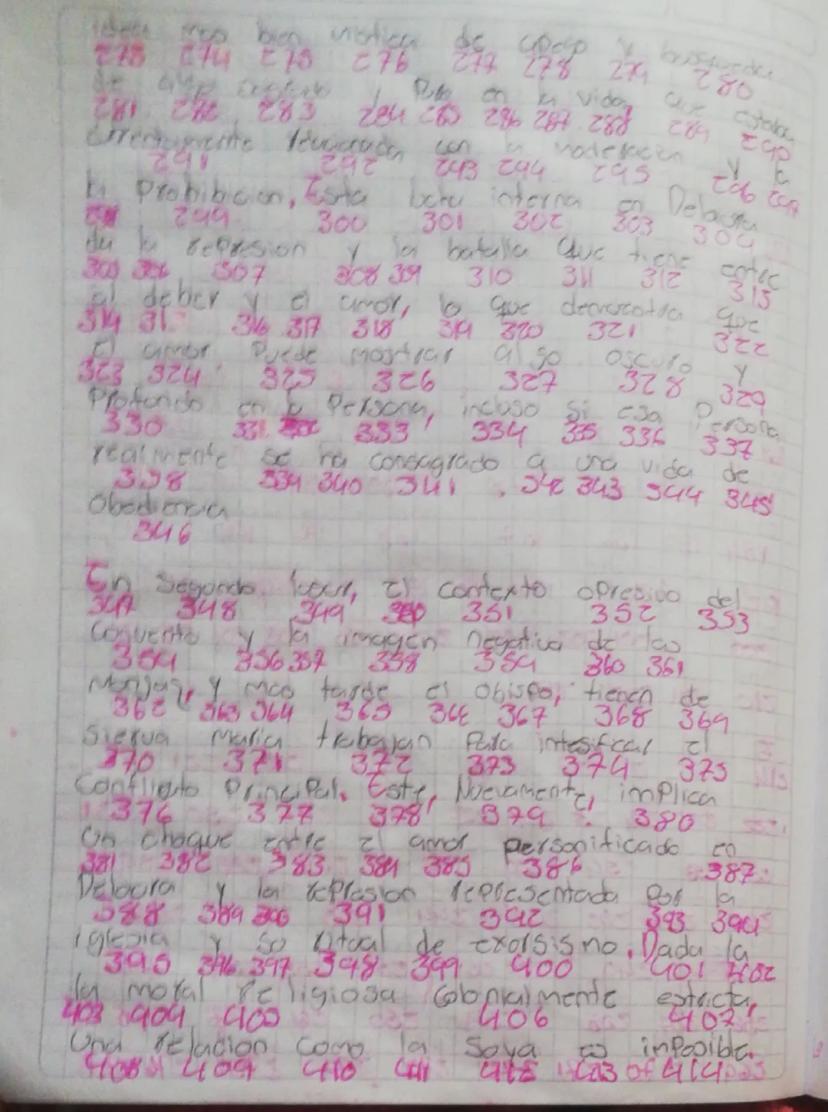 idea mas bien mistica de apego y busqueda
273 274 275 276 277 278 279 280
de y en la vida que estaba
281 282 283 284 285 286 287 288 289 290
con la moderacion y la
291 292 293 294 295 296 297
la Prohibicion, Esta lucha interna en Delaura
299 300 301 302 303 304
la represion y la batalla que tiene entre
305 306 307 308 309 310 311 312 313
el deber y el amor, lo que demuestra que
314 31 316 317 318 319 320 321 322
El amor Puede mostrar algo oscuro y
323 324 325 326 327 328 329
Profundo en la Persona, incluso si esa Persona
330 331 332 333 334 335 336 337
realmente se ha consagrado a una vida de
338 339 340 341 342 343 344 345
Obediencia
346
En segundo lugar, El contexto opresivo del
347 348 349 350 351 352 353
Convento y la imagen negativa de las
354 356 357 358 359 360 361
Monjas, y mas tarde el obispo, tienen de
362 363 364 365 366 367 368 369
Sierva Maria trabajan Para intesificar el
370 371 372 373 374 375
Conflicto Principal. Este, Nuevamente, implica
376 377 378 379 380
Un choque entre el amor personificado en
381 382 383 384 385 386 387
Delaura y la represion representada por la
388 389 390 391 392 393 394
iglesia y su ritual de exorsismo. Dada la
395 396 397 398 399 400 401 402
la moral religiosa Colonialmente estricta,
403 404 405 406 407
Una relacion como la Suya es imposible.
408 409 410 411 412 413 414